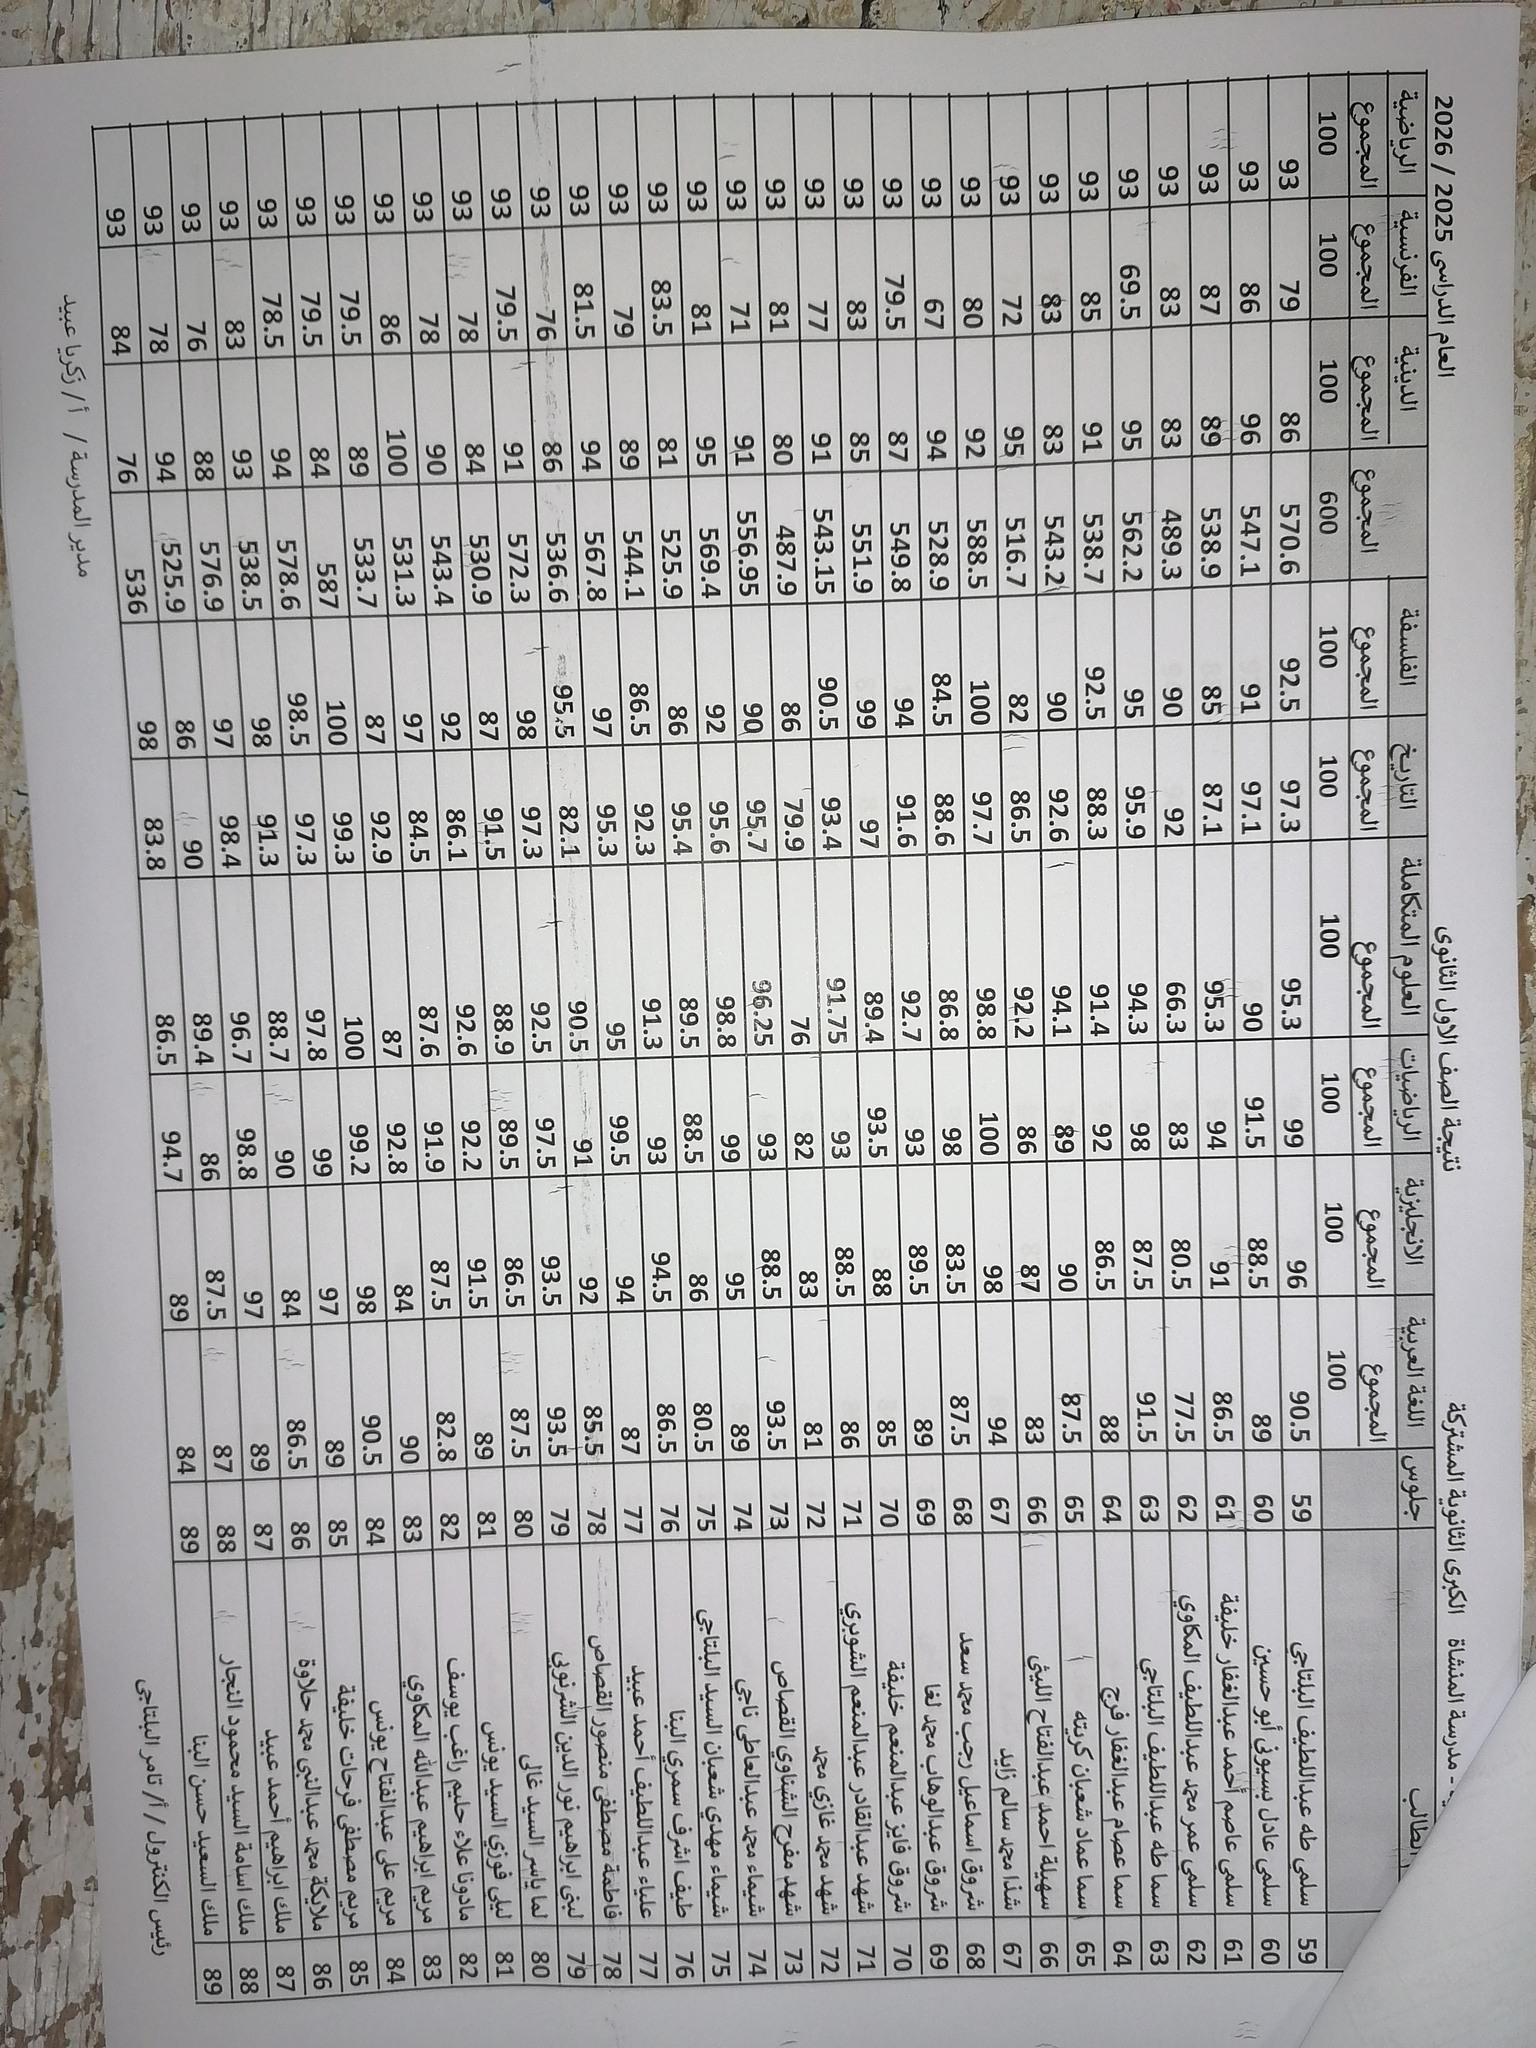 ـة - مدرسة المنشاة الكبرى الثانوية المشتركة نتيجة الصف الاول الثانوى العام الدراسى 2025 / 2026
الطالب جلوس اللغة العربية الانجليزية الرياضيات العلوم المتكاملة التاريخ الفلسفة المجموع الدينية الفرنسية الرياضية
المجموع المجموع المجموع المجموع المجموع المجموع المجموع المجموع المجموع
100 100 100 100 100 100 600 100 100 100
59 سلمى طه عبداللطيف البلتاجي 59 90.5 96 99 95.3 97.3 92.5 570.6 86 79 93
60 سلمى عادل بسيونى أبو حسين 60 89 88.5 91.5 90 97.1 91 547.1 96 86 93
61 سلمى عاصم أحمد عبدالغفار خليفة 61 86.5 91 94 95.3 87.1 85 538.9 89 87 93
62 سلمى عمر محمد عبداللطيف المكاوي 62 77.5 80.5 83 66.3 92 90 489.3 83 83 93
63 سما طه عبداللطيف البلتاجي 63 91.5 87.5 98 94.3 95.9 95 562.2 95 69.5 93
64 سما عصام عبدالغفار فرج 64 88 86.5 92 91.4 88.3 92.5 538.7 91 85 93
65 سما عماد شعبان كريته 65 87.5 90 89 94.1 92.6 90 543.2 83 83 93
66 سهيلة احمد عبدالفتاح الليثى 66 83 87 86 92.2 86.5 82 516.7 95 72 93
67 شذا محمد سالم زايد 67 94 98 100 98.8 97.7 100 588.5 92 80 93
68 شروق اسماعيل رجب محمد سعد 68 87.5 83.5 98 86.8 88.6 84.5 528.9 94 67 93
69 شروق عبدالوهاب محمد لغا 69 89 89.5 93 92.7 91.6 94 549.8 87 79.5 93
70 شروق فايز عبدالمنعم خليفة 70 85 88 93.5 89.4 97 99 551.9 85 83 93
71 شهد عبدالقادر عبدالمنعم الشوبري 71 86 88.5 93 91.75 93.4 90.5 543.15 91 77 93
72 شهد محمد غازي محمد 72 81 83 82 76 79.9 86 487.9 80 81 93
73 شهد مفرح الشناوي القصاص 73 93.5 88.5 93 96.25 95.7 90 556.95 91 71 93
74 شيماء محمد عبدالعاطي ناجي 74 89 95 99 98.8 95.6 92 569.4 95 81 93
75 شيماء مهدي شعبان السيد البلتاجي 75 80.5 86 88.5 89.5 95.4 86 525.9 81 83.5 93
76 طيف اشرف سمري البنا 76 86.5 94.5 93 91.3 92.3 86.5 544.1 89 79 93
77 علياء عبداللطيف أحمد عبيد 77 87 94 99.5 95 95.3 97 567.8 94 81.5 93
78 فاطمة مصطفى منصور القصاص 78 85.5 92 91 90.5 82.1 95.5 536.6 86 76 93
79 لبنى ابراهيم نور الدين الشرنوبى 79 93.5 93.5 97.5 92.5 97.3 98 572.3 91 79.5 93
80 لما ياسر السيد غالى 80 87.5 86.5 89.5 88.9 91.5 87 530.9 84 78 93
81 ليلي فوزي السيد يونس 81 89 91.5 92.2 92.6 86.1 92 543.4 90 78 93
82 مادونا علاء حليم راغب يوسف 82 82.8 87.5 91.9 87.6 84.5 97 531.3 100 86 93
83 مريم ابراهيم عبدالله المكاوي 83 90 84 92.8 87 92.9 87 533.7 89 79.5 93
84 مريم علي عبدالفتاح يونس 84 90.5 98 99.2 100 99.3 100 587 84 79.5 93
85 مريم مصطفى فرحات خليفة 85 89 97 99 97.8 97.3 98.5 578.6 94 78.5 93
86 ملايكة محمد عبدالنبي محمد حلاوة 86 86.5 84 90 88.7 91.3 98 538.5 93 83 93
87 ملك ابراهيم أحمد عبيد 87 89 97 98.8 96.7 98.4 97 576.9 88 76 93
88 ملك اسامة السيد محمود النجار 88 87 87.5 86 89.4 90 86 525.9 94 78 93
89 ملك السعيد حسن البنا 89 84 89 94.7 86.5 83.8 98 536 76 84 93
رئيس الكنترول / أ/ تامر البلتاجى مدير المدرسة / أ / زكريا عبيد